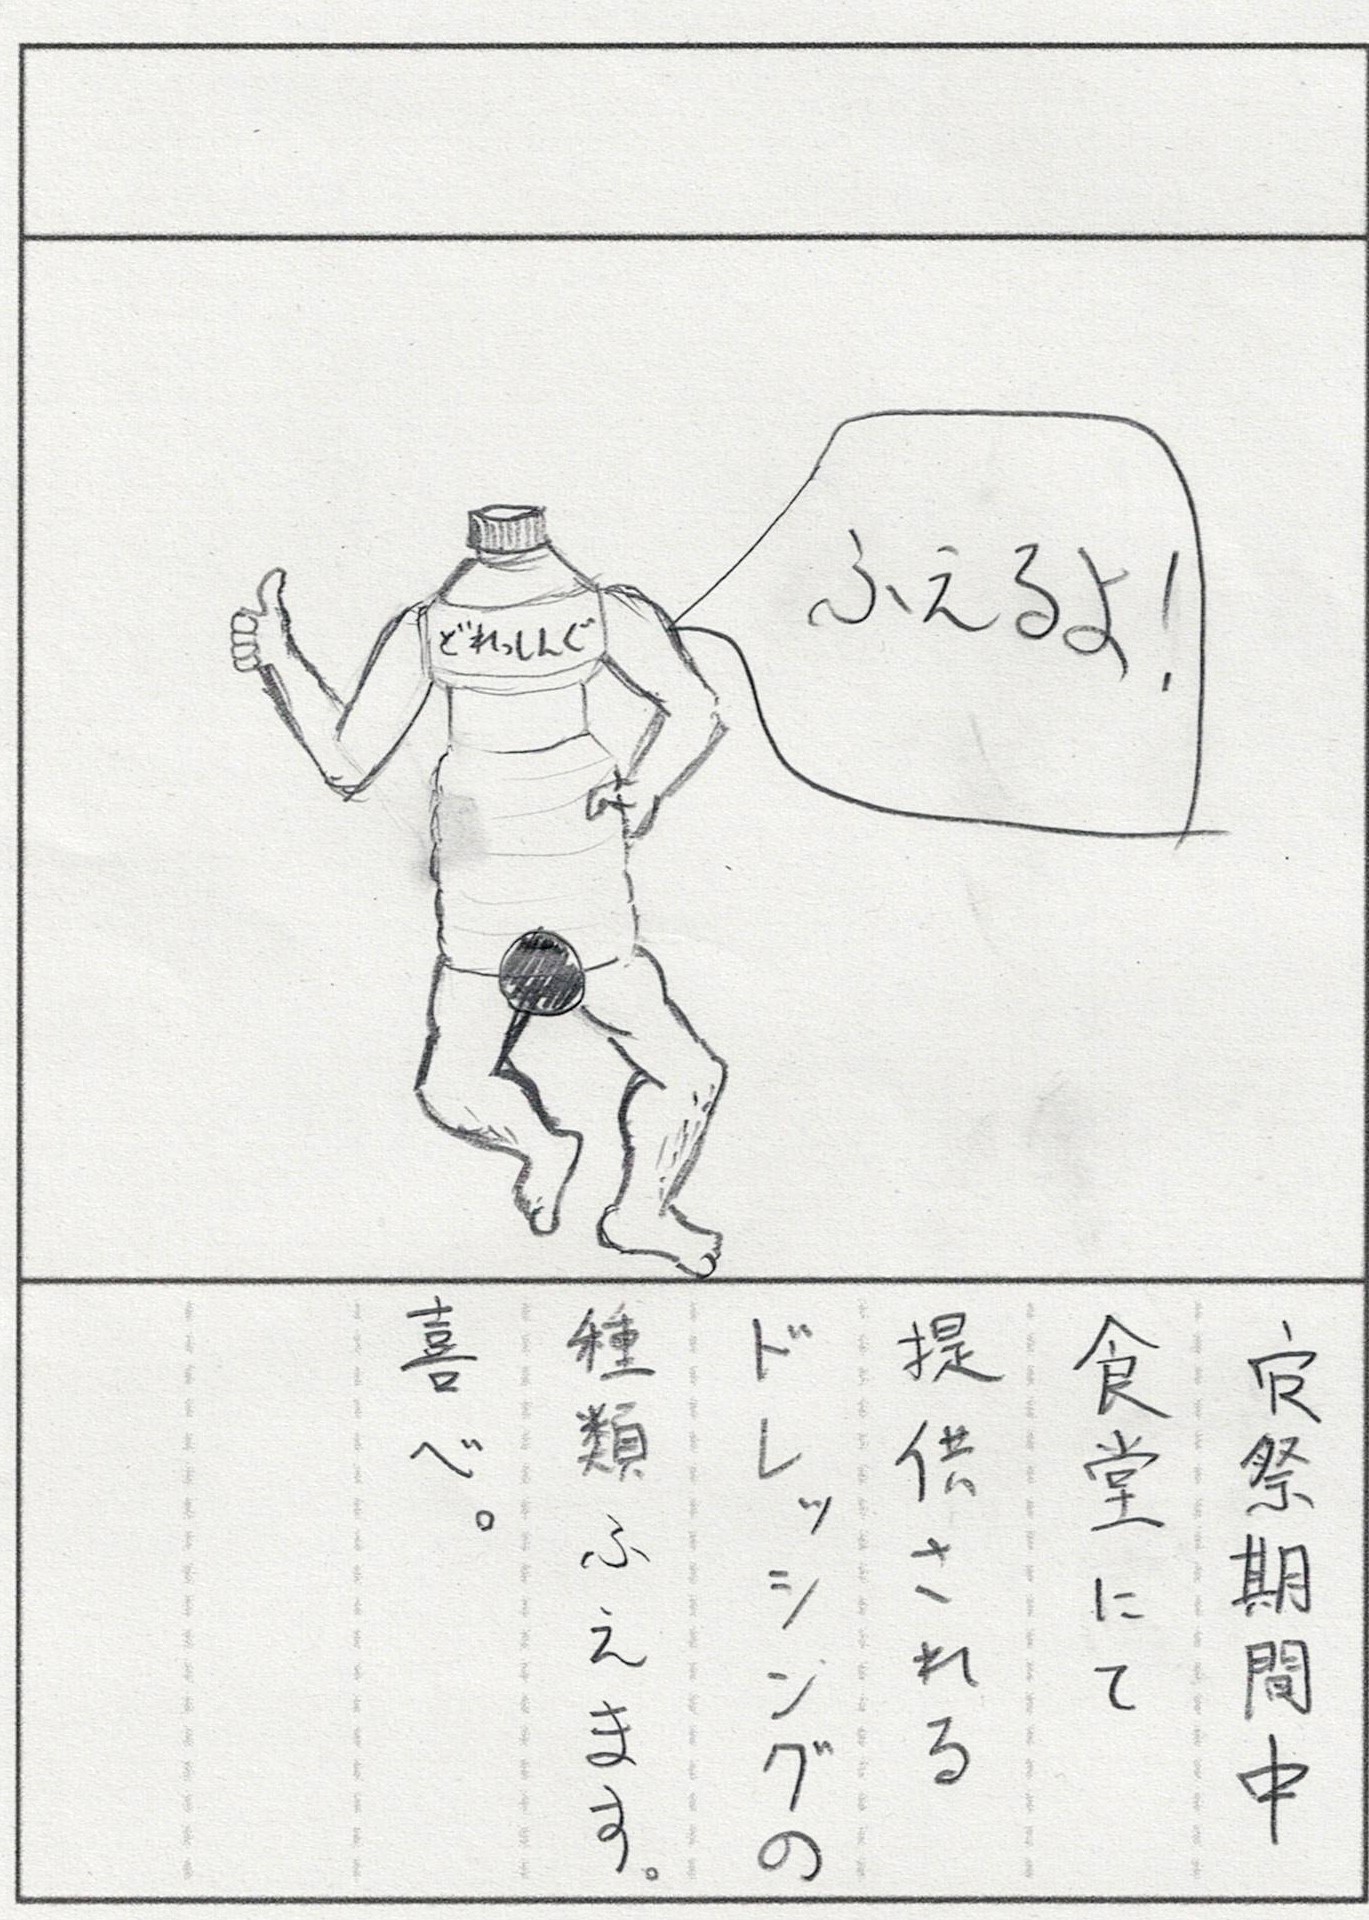 ふえるよ!
どれっしんぐ
祭期間中
食堂にて
提供される
ドレッシングの
種類ふえます。
喜べ。